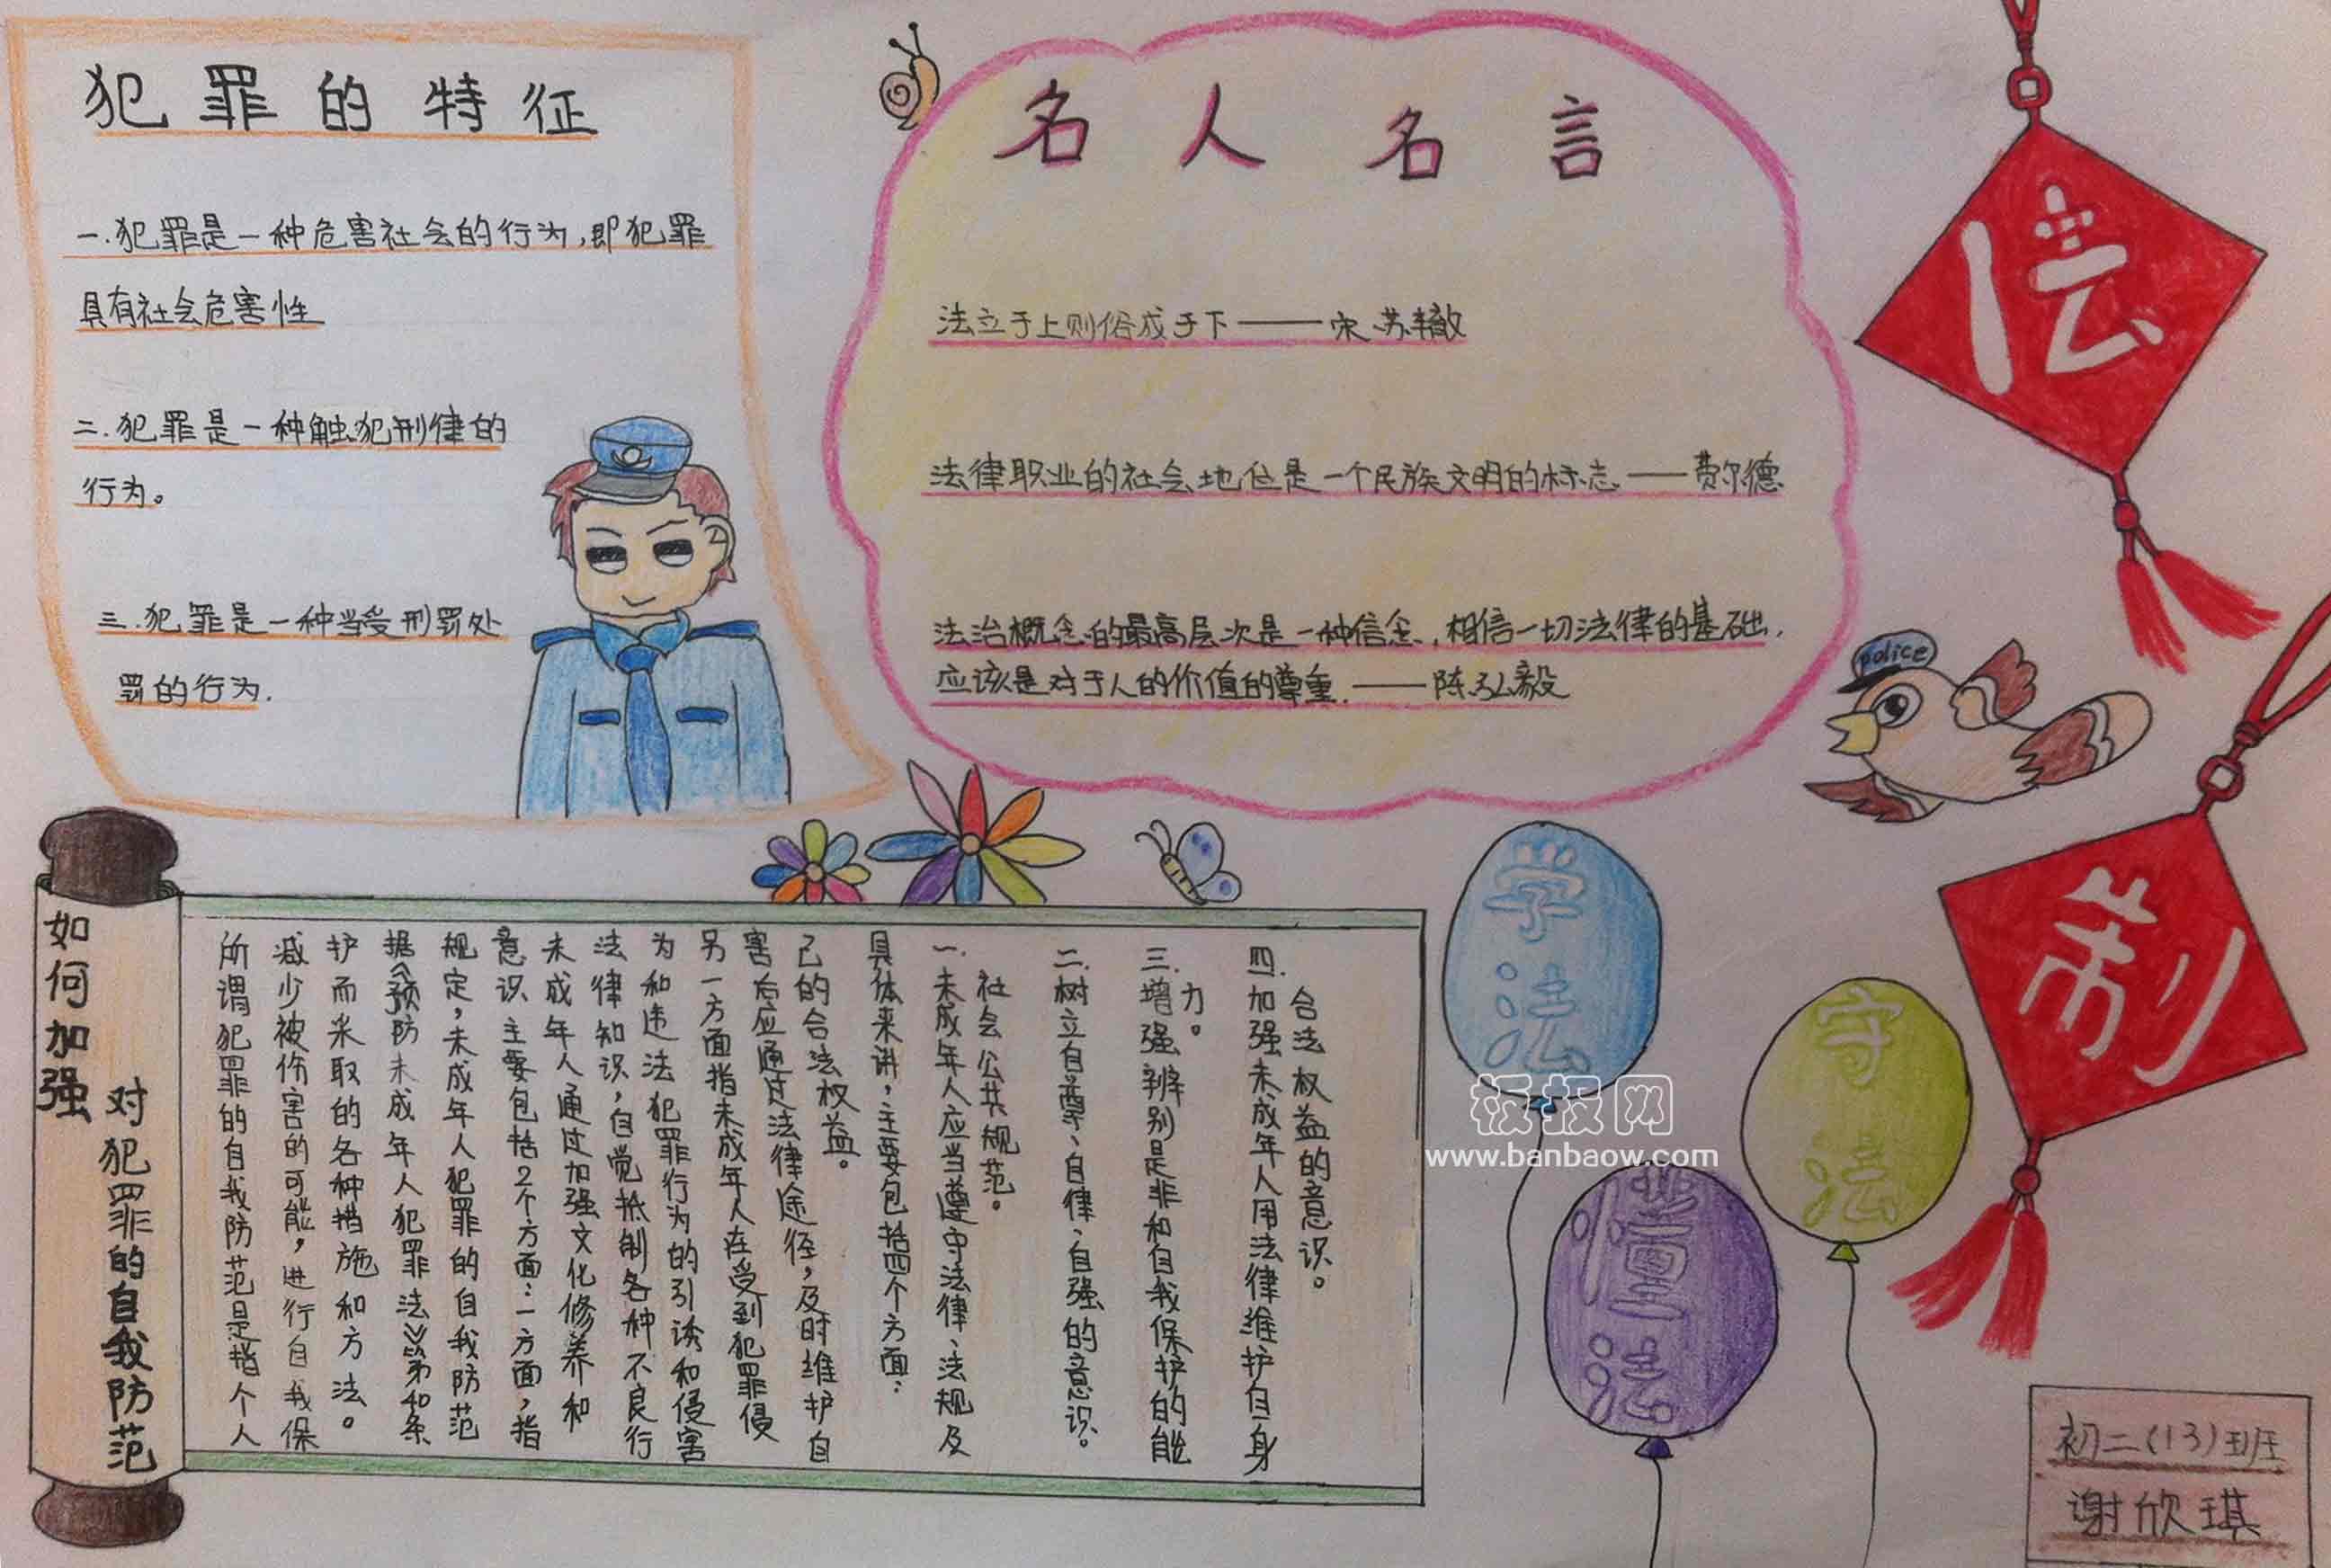 犯罪的特征
一.犯罪是一种危害社会的行为,即犯罪
具有社会危害性
二.犯罪是一种触犯刑律的
行为。
三.犯罪是一种当受刑罚处
罚的行为.
名人名言
法立于上则俗成于下——宋.苏辙
法律职业的社会地位是一个民族文明的标志——费尔德
法治概念的最高层次是一种信念,相信一切法律的基础,
应该是对于人的价值的尊重.——陈弘毅
法
police
制
如何加强
对犯罪的自我防范
所谓犯罪的自我防范是指个人
减少被伤害的可能,进行自我保
护而采取的各种措施和方法。
据《预防未成年人犯罪法》第40条
规定,未成年人犯罪的自我防范
意识主要包括2个方面:一方面,指
未成年人通过加强文化修养和
法律知识,自觉抵制各种不良行
为和违法犯罪行为的引诱和侵害
另一方面指未成年人在受到犯罪侵
害后应通过法律途径,及时维护自
己的合法权益。
具体来讲,主要包括四个方面:
一.未成年人应当遵守法律、法规及
社会公共规范。
二.树立自尊、自律、自强的意识。
三.增强辨别是非和自我保护的能
力。
四.加强未成年人用法律维护自身
合法权益的意识。
学法
守法
懂法
板报网
www.banbaow.com
初二(13)班
谢欣琪